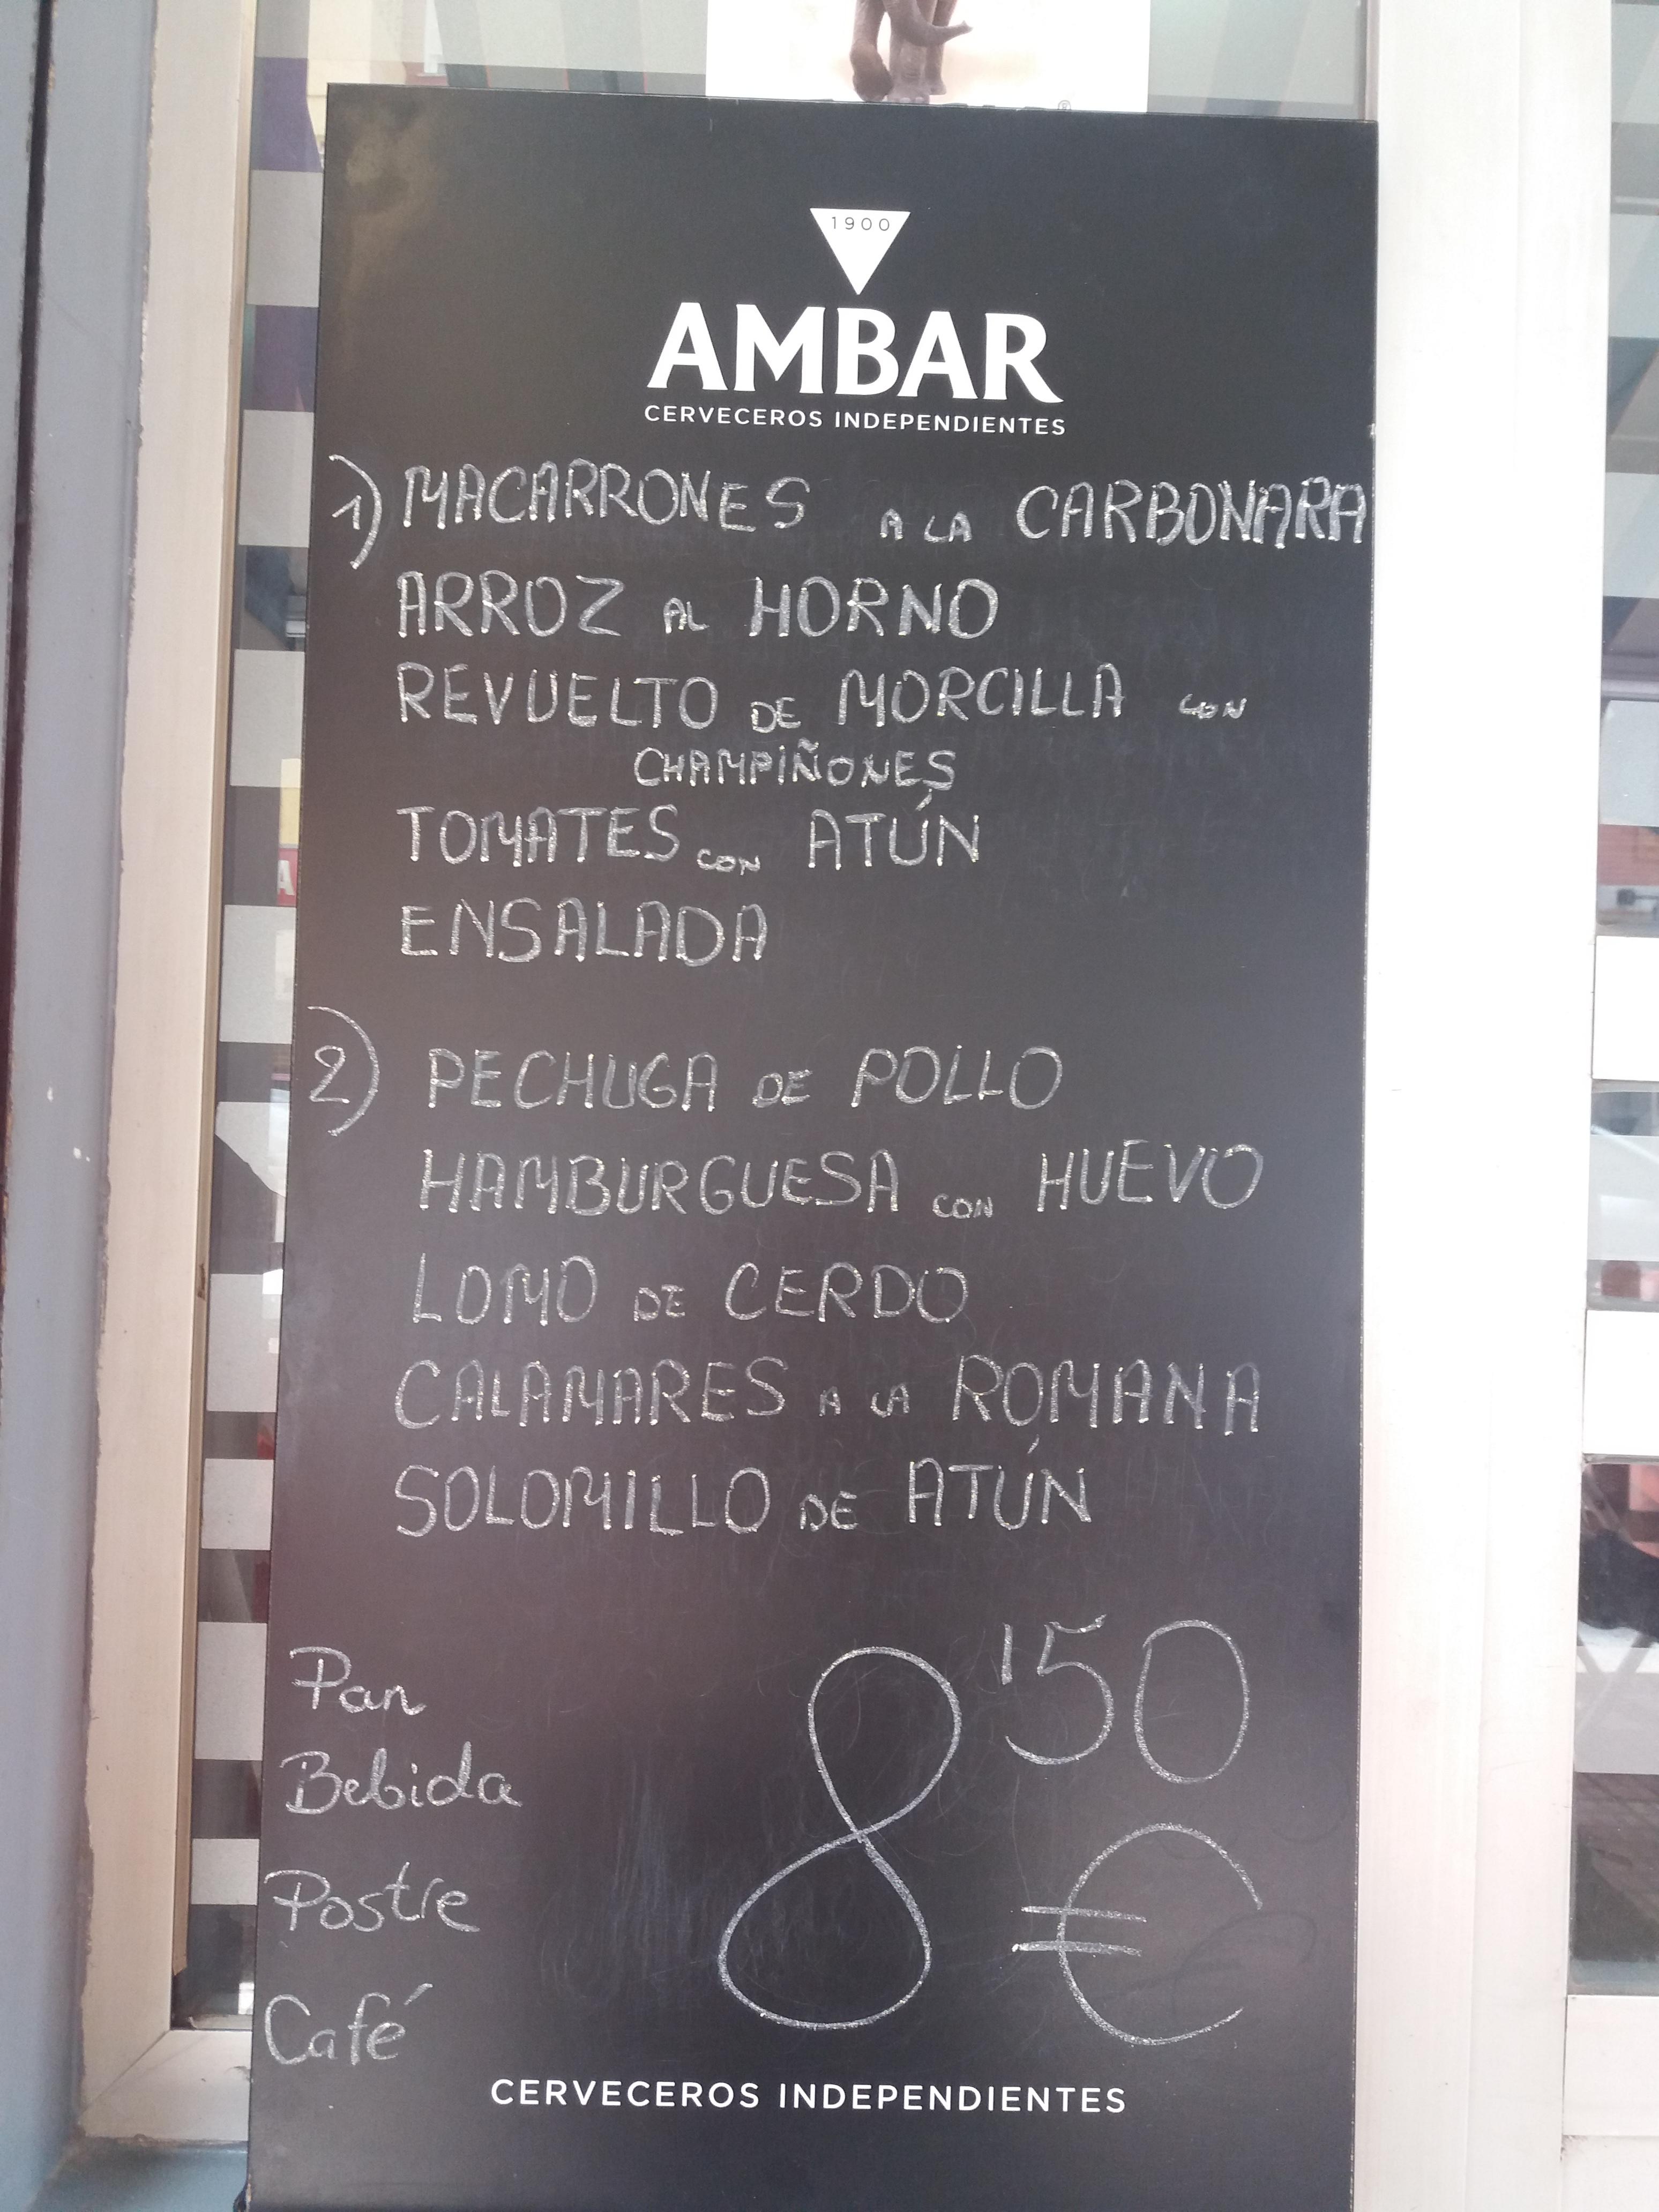 1900
AMBAR
CERVECEROS INDEPENDIENTES
1) MACARRONES A LA CARBONARA
ARROZ AL HORNO
REVUELTO DE MORCILLA CON
CHAMPIÑONES
TOMATES CON ATÚN
ENSALADA
2) PECHUGA DE POLLO
HAMBURGUESA CON HUEVO
LOMO DE CERDO
CALAMARES A LA ROMANA
SOLOMILLO DE ATÚN
Pan
Bebida
Postre
Café
8'50
€
CERVECEROS INDEPENDIENTES